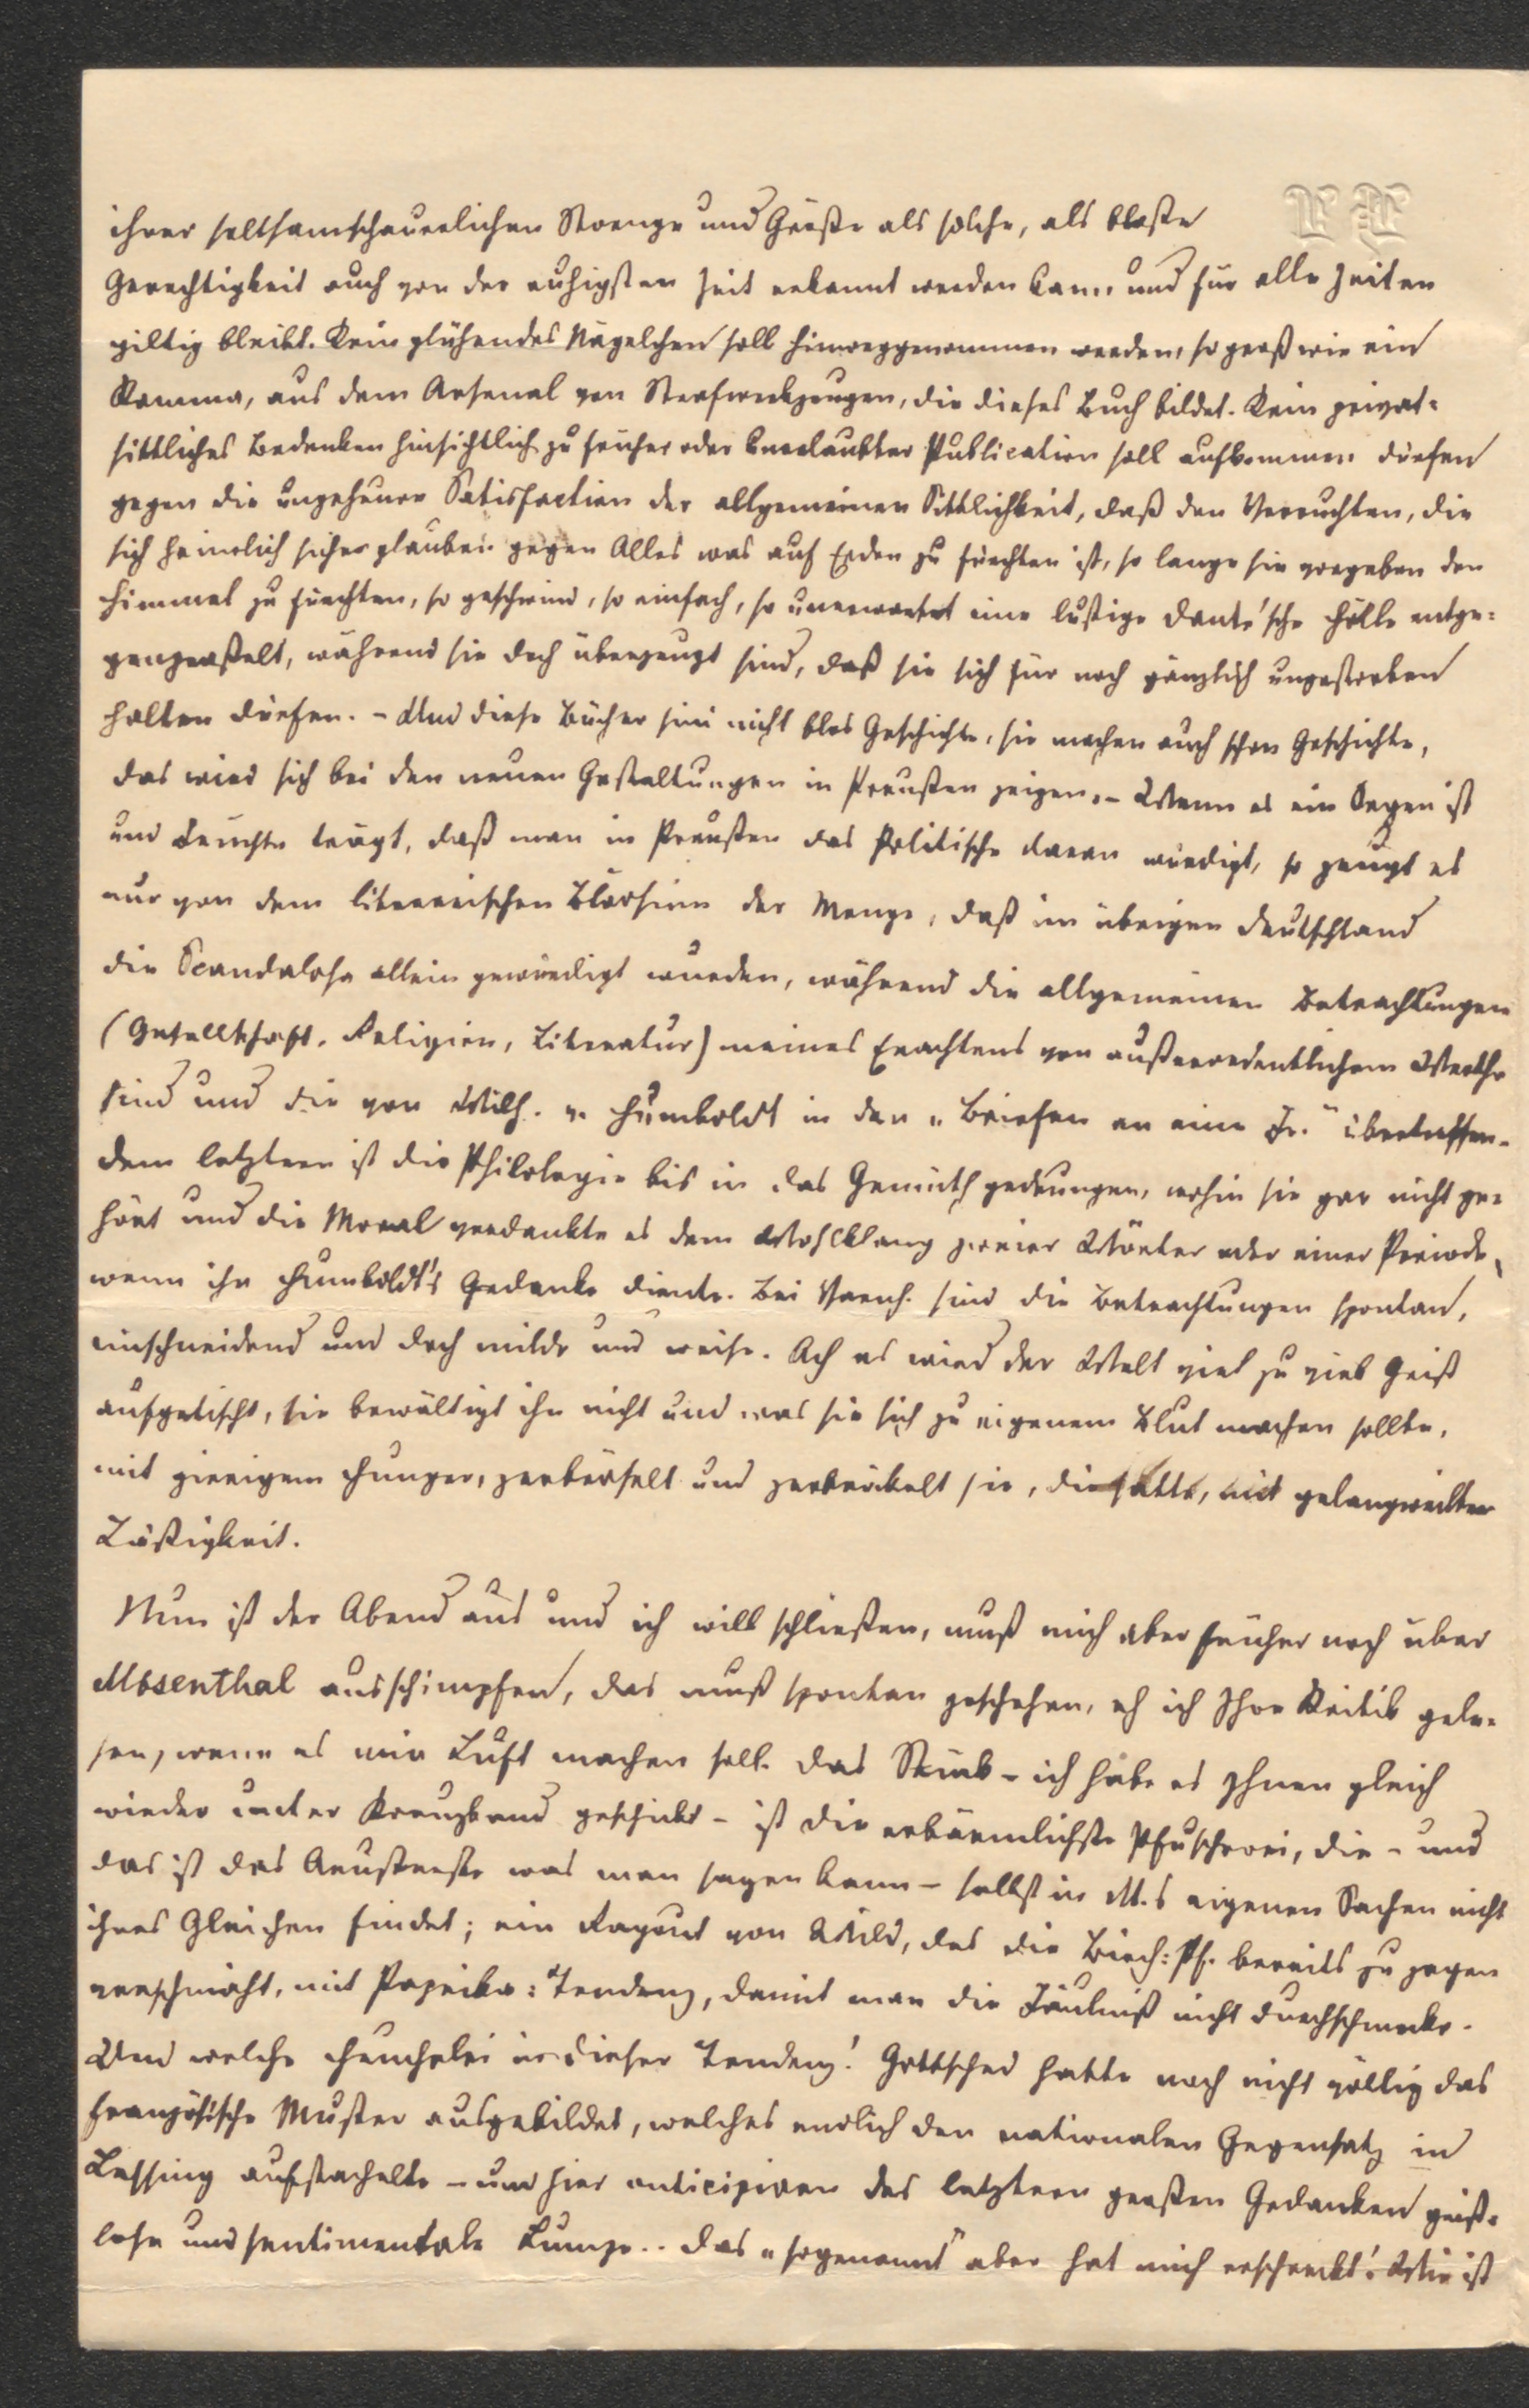 ihrer seltsamschauerlichen Strenge und Größe als solche, als bloße
Gerechtigkeit auch von der ruhigsten Zeit erkannt werden kann und für alle Zeiten
giltig bleibt. Kein glühendes Nägelchen soll hinweggenommen werden, so groß wie ein
Komma, aus dem Arsenal von Strafwerkzeugen, die dieses Buch bildet. Kein privat-
sittliches Bedenken hinsichtlich zu früher oder unerlaubter Publication soll aufkommen dürfen
gegen die ungeheure Satisfaction der allgemeinen Sittlichkeit, daß den Verruchten, die
sich heimlich sicher glauben gegen Alles was auf Erden zu fürchten ist, so lange sie vorgeben den
Himmel zu fürchten, so geschwind, so einfach, so unerwartet eine lustige Dante'sche Hölle entge-
genprasselt, während sie doch überzeugt sind, daß sie sich für noch gänzlich ungestorben
halten dürfen. - Und diese Bücher sind nicht blos Geschichte, sie machen auch schon Geschichte,
das wird sich bei den neuen Gestaltungen in Preußen zeigen. - Wenn es ein Segen ist
und Früchte trägt, daß man in Preußen das Politische daran würdigt, so zeugt es
nur von dem literarischen Blödsinn der Menge, daß im übrigen Deutschland
die Scandalosa allein gewürdigt wurden, während die allgemeinen Betrachtungen
(Gesellschaft, Religion, Literatur) meines Erachtens von außerordentlichem Werthe
sind und die von Wilh. v. Humboldt in den "Briefen an eine Fr." übertreffen.
Dem letztern ist die Philologie bis in das Gemüth gedrungen, wohin sie gar nicht ge-
hört und die Moral verdankte es dem Wohlklang zweier Wörter oder einer Periode,
wenn ihr Humboldt's Gedanke diente. Bei Varnh. sind die Betrachtungen spontan,
einschneidend und doch milde und weise. Ach es wird der Welt viel zu viel Geist
aufgetischt, sie bewältigt ihn nicht und was sie sich zu eigenem Blut machen sollte,
mit gierigem Hunger, zerbröselt und zerbröckelt sie, die satte, mit gelangweilter
Lässigkeit.
Nun ist der Abend aus und ich will schließen, muß mich aber früher noch über
Mosenthal ausschimpfen, das muß spontan geschehen, eh ich Ihre Kritik gele-
sen, wenn es mir Luft machen soll. Das Stück - ich habe es Ihnen gleich
wieder unter Kreuzband geschickt - ist die erbärmlichste Pfuscherei, die - und
das ist das Aeußerste was man sagen kann - selbst in M.s eigenen Sachen nicht
ihres Gleichen findet; ein Ragout von Wild, das die Birch-Pf. bereits zu jagen
verschmäht, mit Paprika-Tendenz, damit man die Fäulniß nicht durchschmecke.
Und welche Heuchelei in dieser Tendenz! Gottsched hatte noch nicht völlig das
französische Muster ausgebildet, welches endlich den nationalen Gegensatz in
Lessing aufstachelte - und hier anticipiren des letztern großen Gedanken geist-
lose und sentimentale Lumpe.. Das "sogenannt" aber hat mich erschreckt! Wie ist